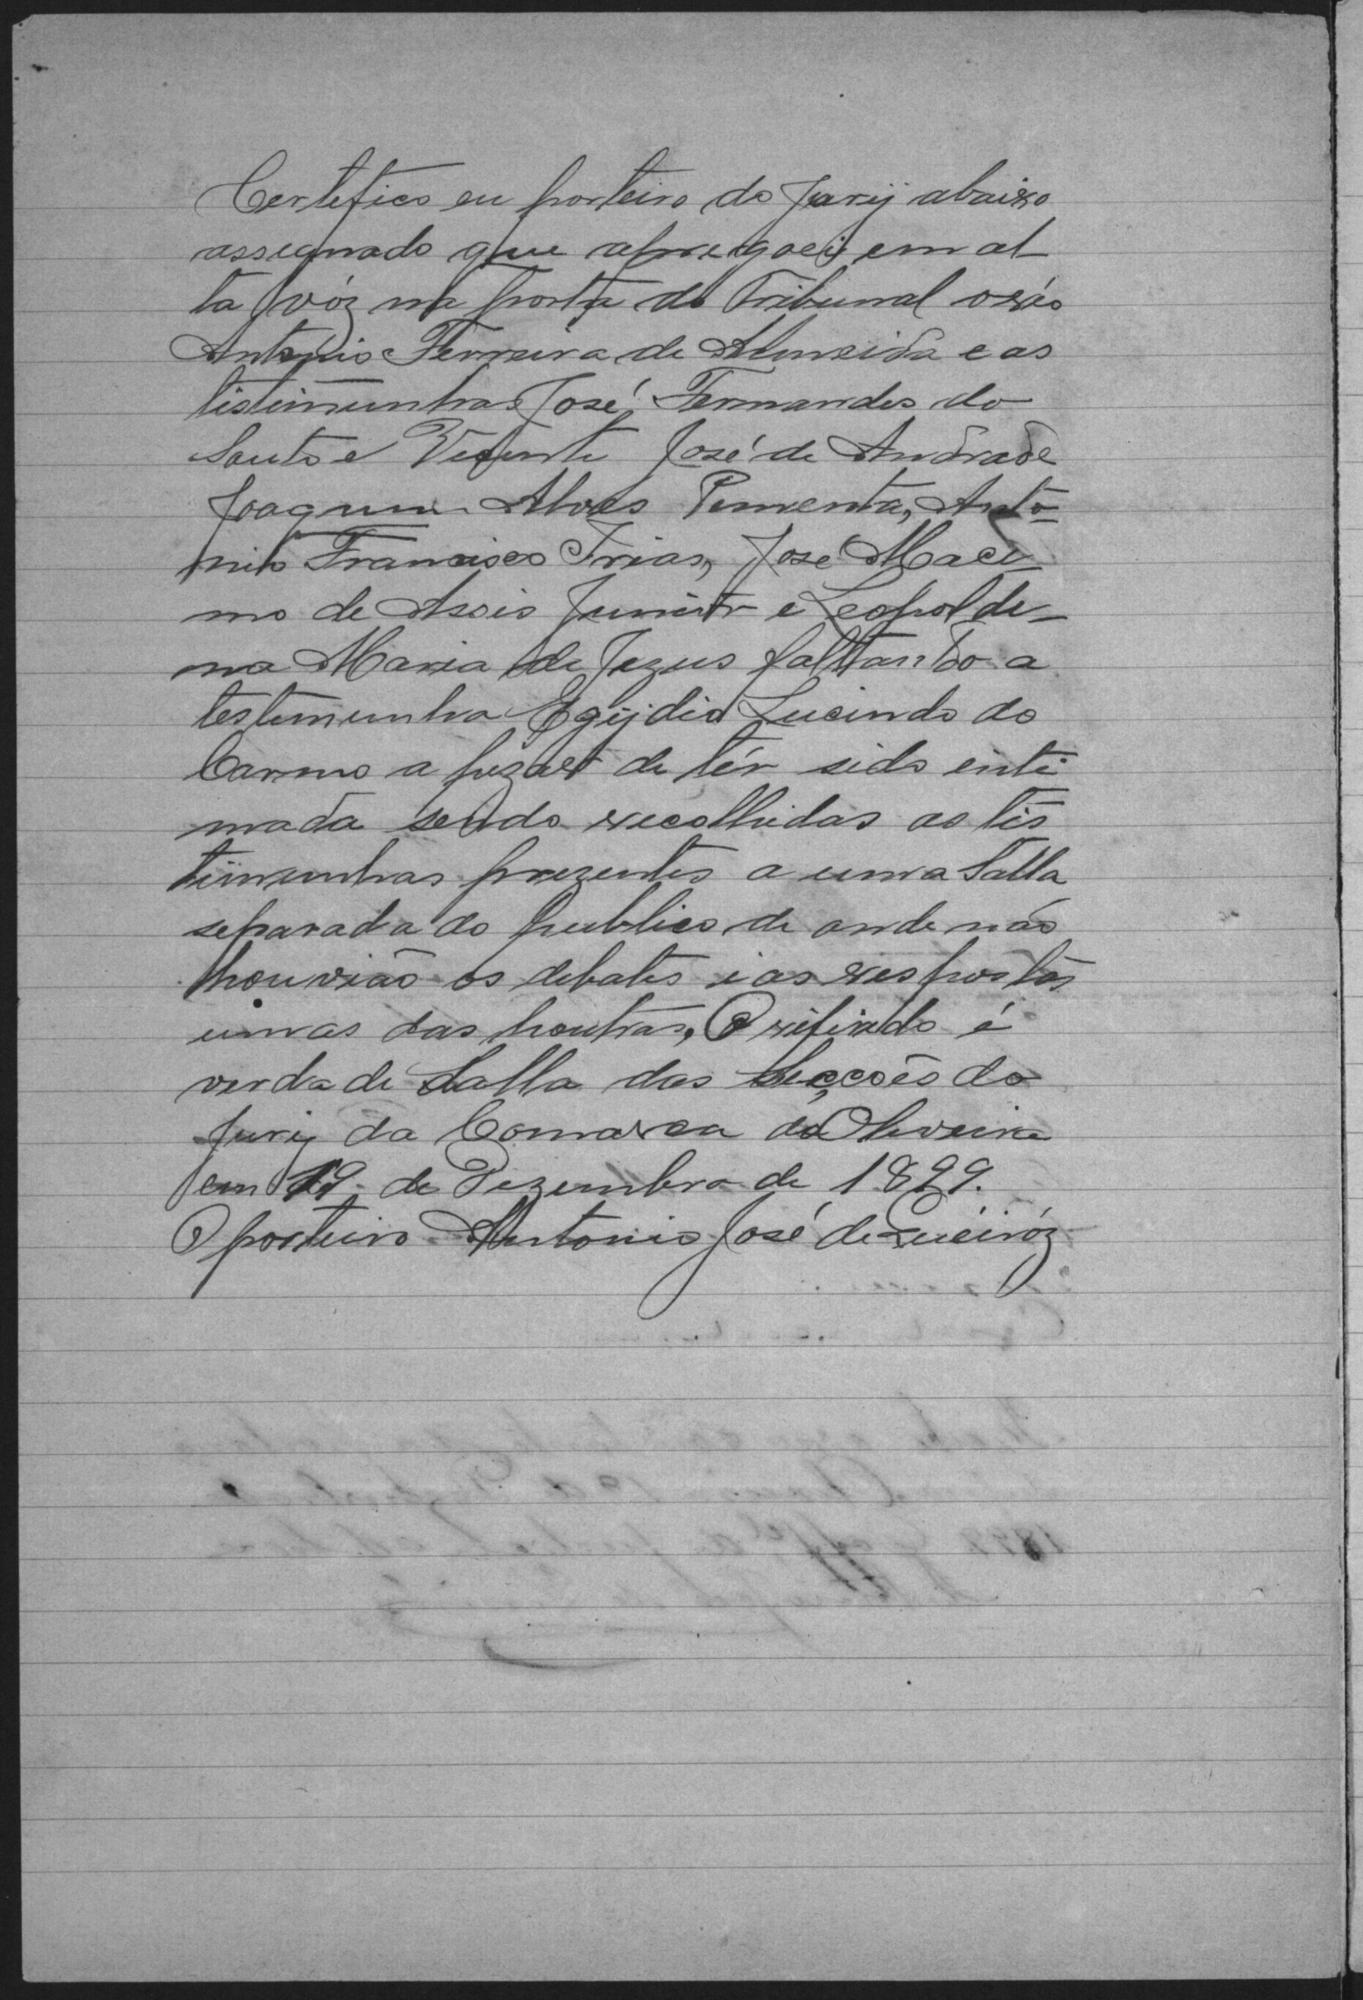 Certefico eu porteiro do Jurij abaixo
assignado que apregoei em al
ta vóz na porta do Tribunal o réo
Antonio Ferreira de Almeida e as
testimunhas José Fernandes do
Souto e Vicente José de Andrade
Joaquim Alves Pimenta, Anto-
nio Francisco Frias, José Maci-
mo de Assis Junior e Leopoldi-
na Maria de Jezus faltando a
testemunha Egijdio Lucindo do
Carmo a pezar de tér sido inti
mada sendo recolhidas as tes
timunhas prezentes a uma Salla
separada do publico de onde não
houvião os debates i as respostas
umas das houtras, O referido é
verdade Salla das Secçoẽs do
Jurij da Comarca da Oliveira
em 19 de Dezembro de 1899.
O porteiro Antonio José de Queiróz